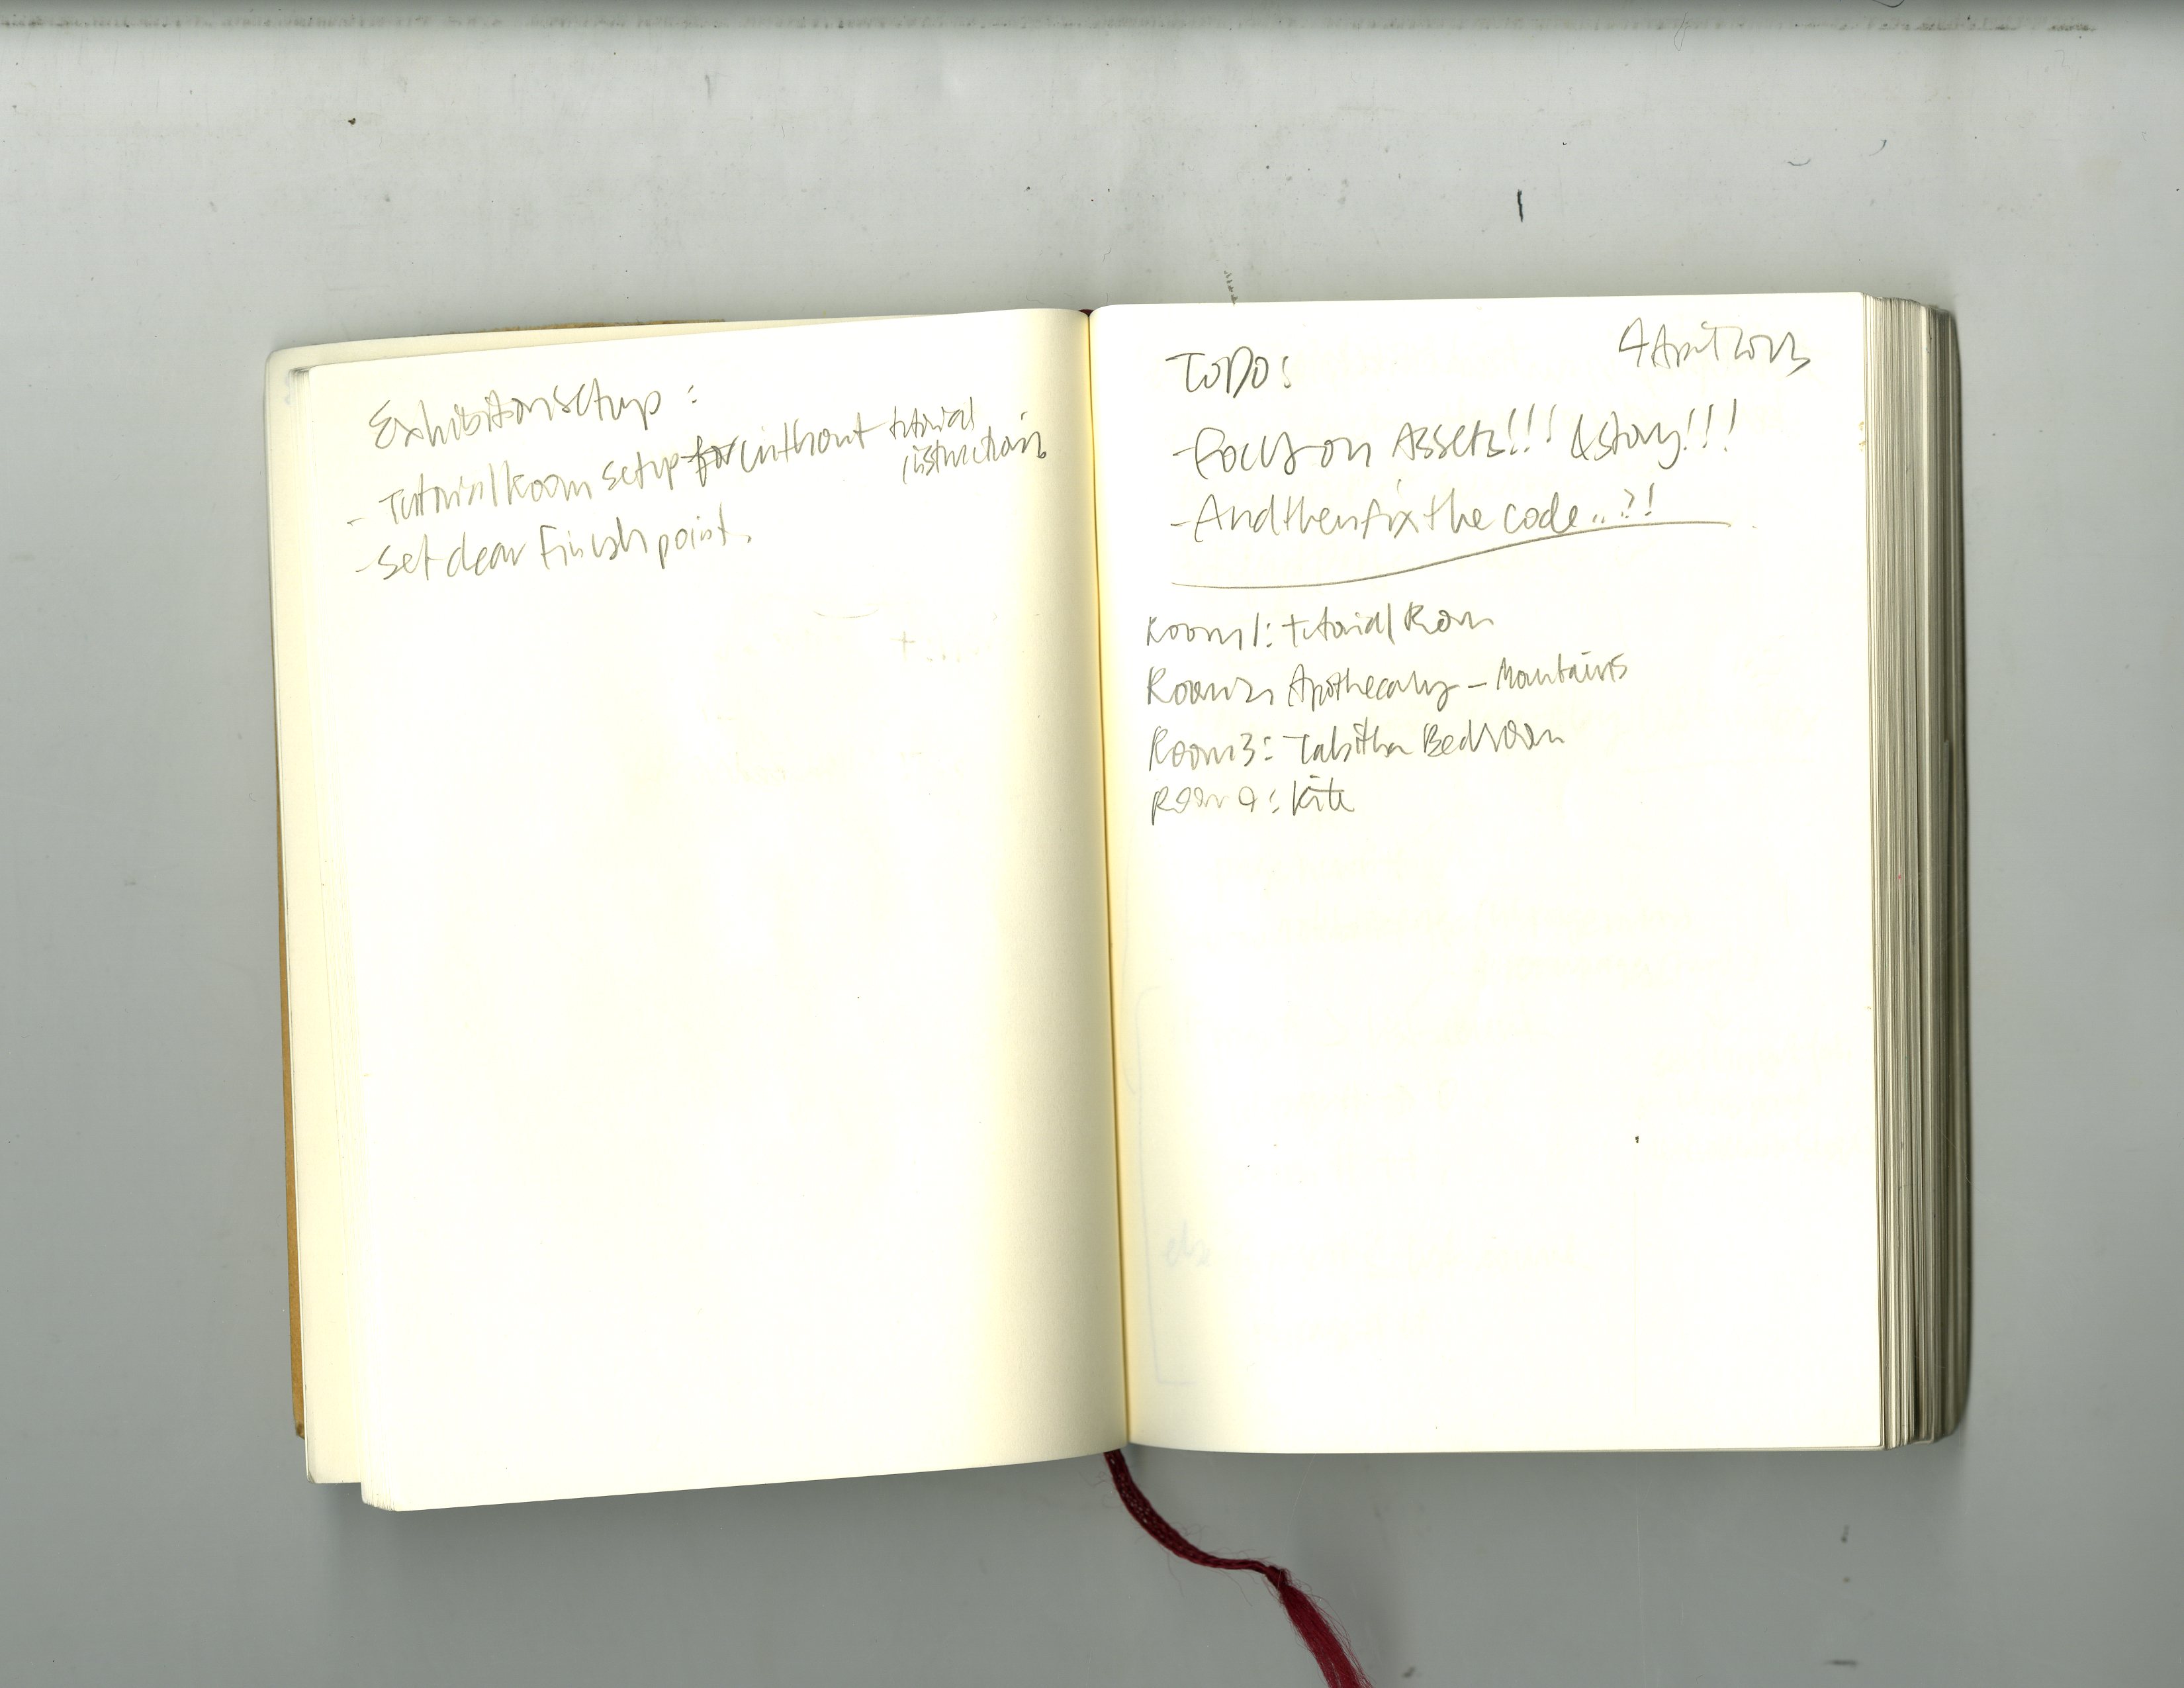 Exhibition setup :
- Tutorial Room setup for without tutorial
instruction.
- set clear Finish point.
TODO:
4 April 2023
- Focus on Assets!!! & story!!!
- And then fix the code..?!
Room 1: tutorial Room
Room 2: Apothecary - Mountains
Room 3: Tabitha Bedroom
Room 4: Kite